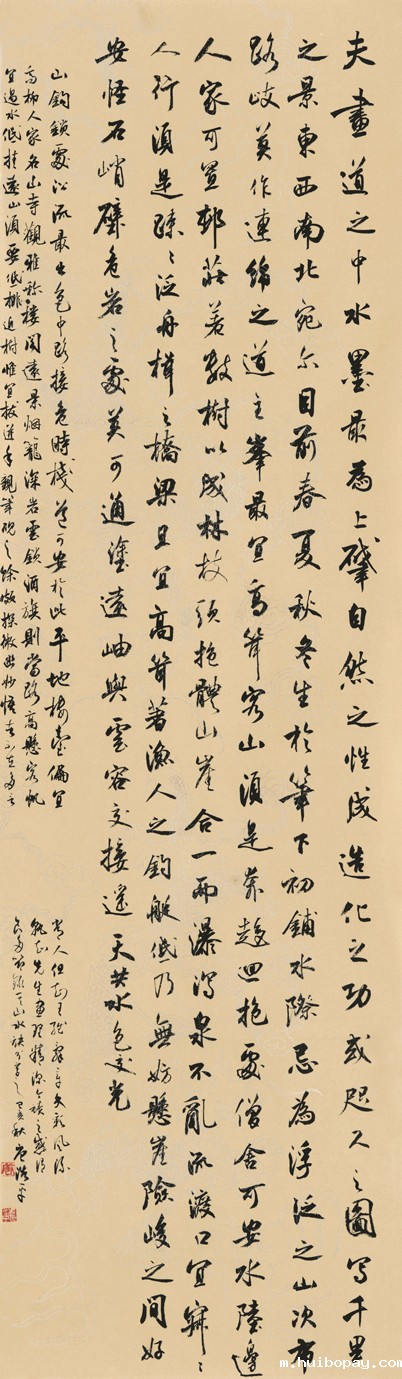 夫畫道之中水墨最為上肇自然之性成造化之功或咫尺之圖寫千里
之景東西南北宛尔目前春夏秋冬生於筆下初鋪水際忌為浮泛之山次布
路歧莫作連綿之道主峯最宜高聳客山須是奔趨迴抱處僧舍可安水陸邊
人家可置邨莊著數樹以成林枝須抱體山崖合一而瀑瀉泉不亂流渡口宜寂〻
人行須是疏〻泛舟楫之橋梁且宜高聳著漁人之釣艇低乃無妨懸崖險峻之間好
安怪石峭壁危岩之處莫可通塗遠岫與雲容交接遥天共水色交光
山鈎鎖處沿流最出色中路接危時棧道可安於此平地樓臺偏宜
高柳人家名山寺觀雅称樓閣遠景烟籠深岩雲鎖酒旗則當路高懸客帆
宜遇水低挂遠山須要低排近樹惟宜拔迸手親筆硯之餘探微妙悟者不在多言
世人但知王
先生畫理精深
山水訣秋
m.huibopay.com